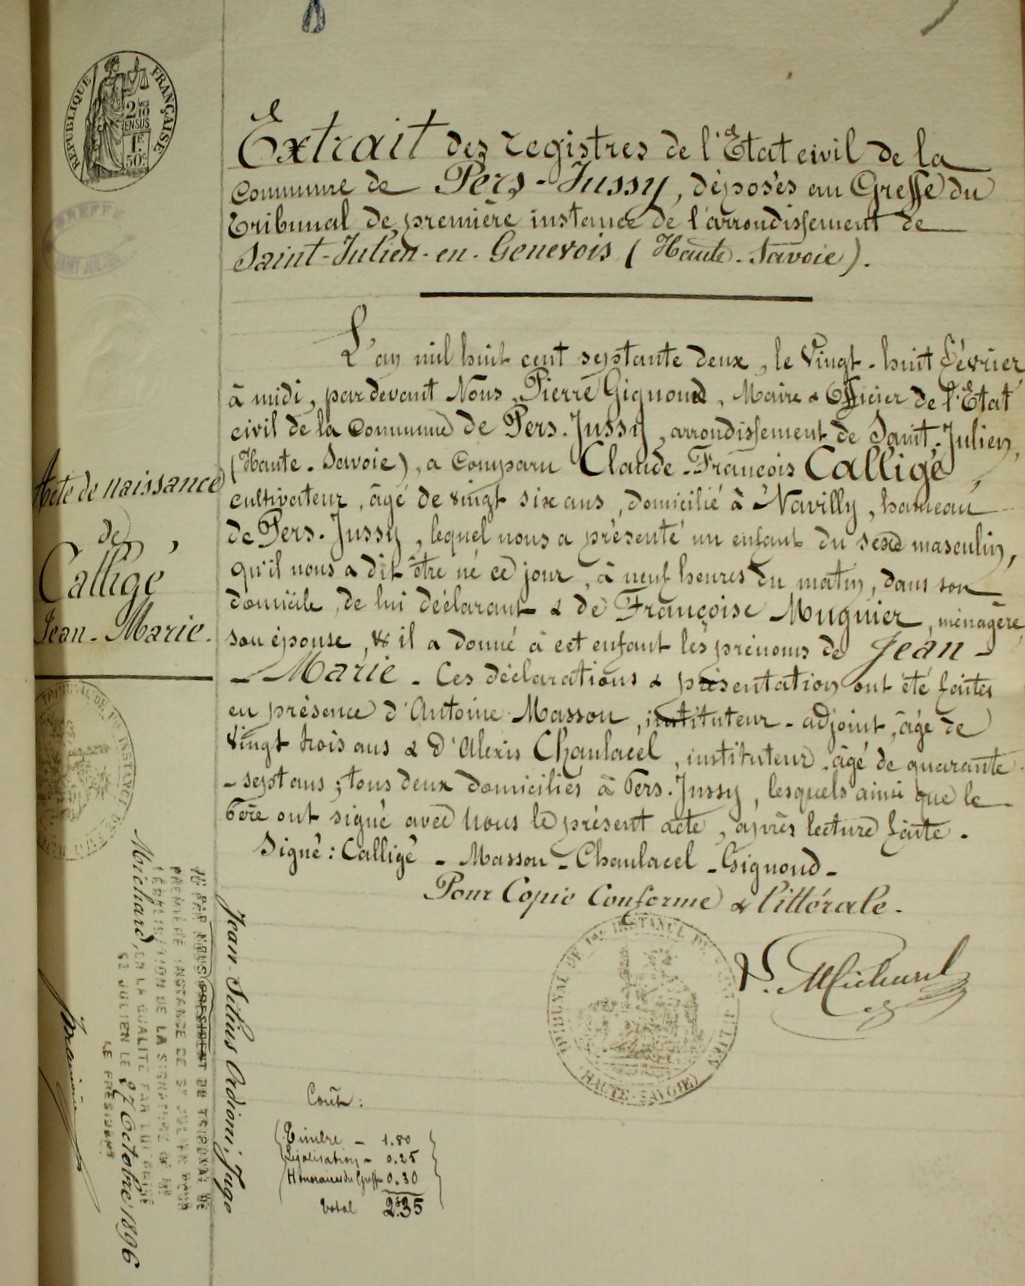 RÉPUBLIQUE FRANÇAISE
2/10
EN SUS
1F
50c
Extrait des registres de l'Etat civil de la
Commune de Pers-Jussy, déposés au Greffe du
Tribunal de première instance de l'arrondissement de
Saint-Julien-en-Genevois (Haute-Savoie).
L'an mil huit cent septante deux, le Vingt-huit février
à midi, par devant Nous, Pierre Gignoud, Maire & Officier de l'Etat
civil de la Commune de Pers-Jussy, arrondissement de Saint-Julien,
(Haute-Savoie), a comparu Claude-François Calligé,
cultivateur, âgé de vingt six ans, domicilié à Navilly, hameau
de Pers-Jussy, lequel nous a présenté un enfant du sexe masculin,
qu'il nous a dit être né ce jour, à neuf heures du matin, dans son
domicile, de lui déclarant & de Françoise Mugnier, ménagère,
son épouse, & il a donné à cet enfant les prénoms de Jean-
-Marie. Ces déclarations & présentation ont été faites
en présence d'Antoine Masson, instituteur-adjoint, âgé de
vingt trois ans & d'Alexis Chaulacel, instituteur, âgé de quarante
-sept ans; tous deux domiciliés à Pers-Jussy, lesquels ainsi que le
Père ont signé avec Nous le présent acte, après lecture faite.
Signé: Calligé - Masson - Chaulacel - Gignoud -
Pour Copie Conforme & littérale.
Acte de naissance
de
Calligé
Jean-Marie.
V. Michard
TRIBUNAL DE 1RE INSTANCE DE ST JULIEN
(HAUTE-SAVOIE)
Jean-Silius Ordioni, Juge
VU PAR NOUS PRÉSIDENT DU TRIBUNAL DE
PREMIÈRE INSTANCE DE ST JULIEN POUR
LÉGALISATION DE LA SIGNATURE DE MR
Michard, EN LA QUALITÉ PAR LUI PRISE
ST JULIEN LE 27 Octobre 1896
LE PRÉSIDENT
Coût:
Timbre - 1.80
Légalisation - 0.25
Honoraires du Greffe 0.30
Total 2.35